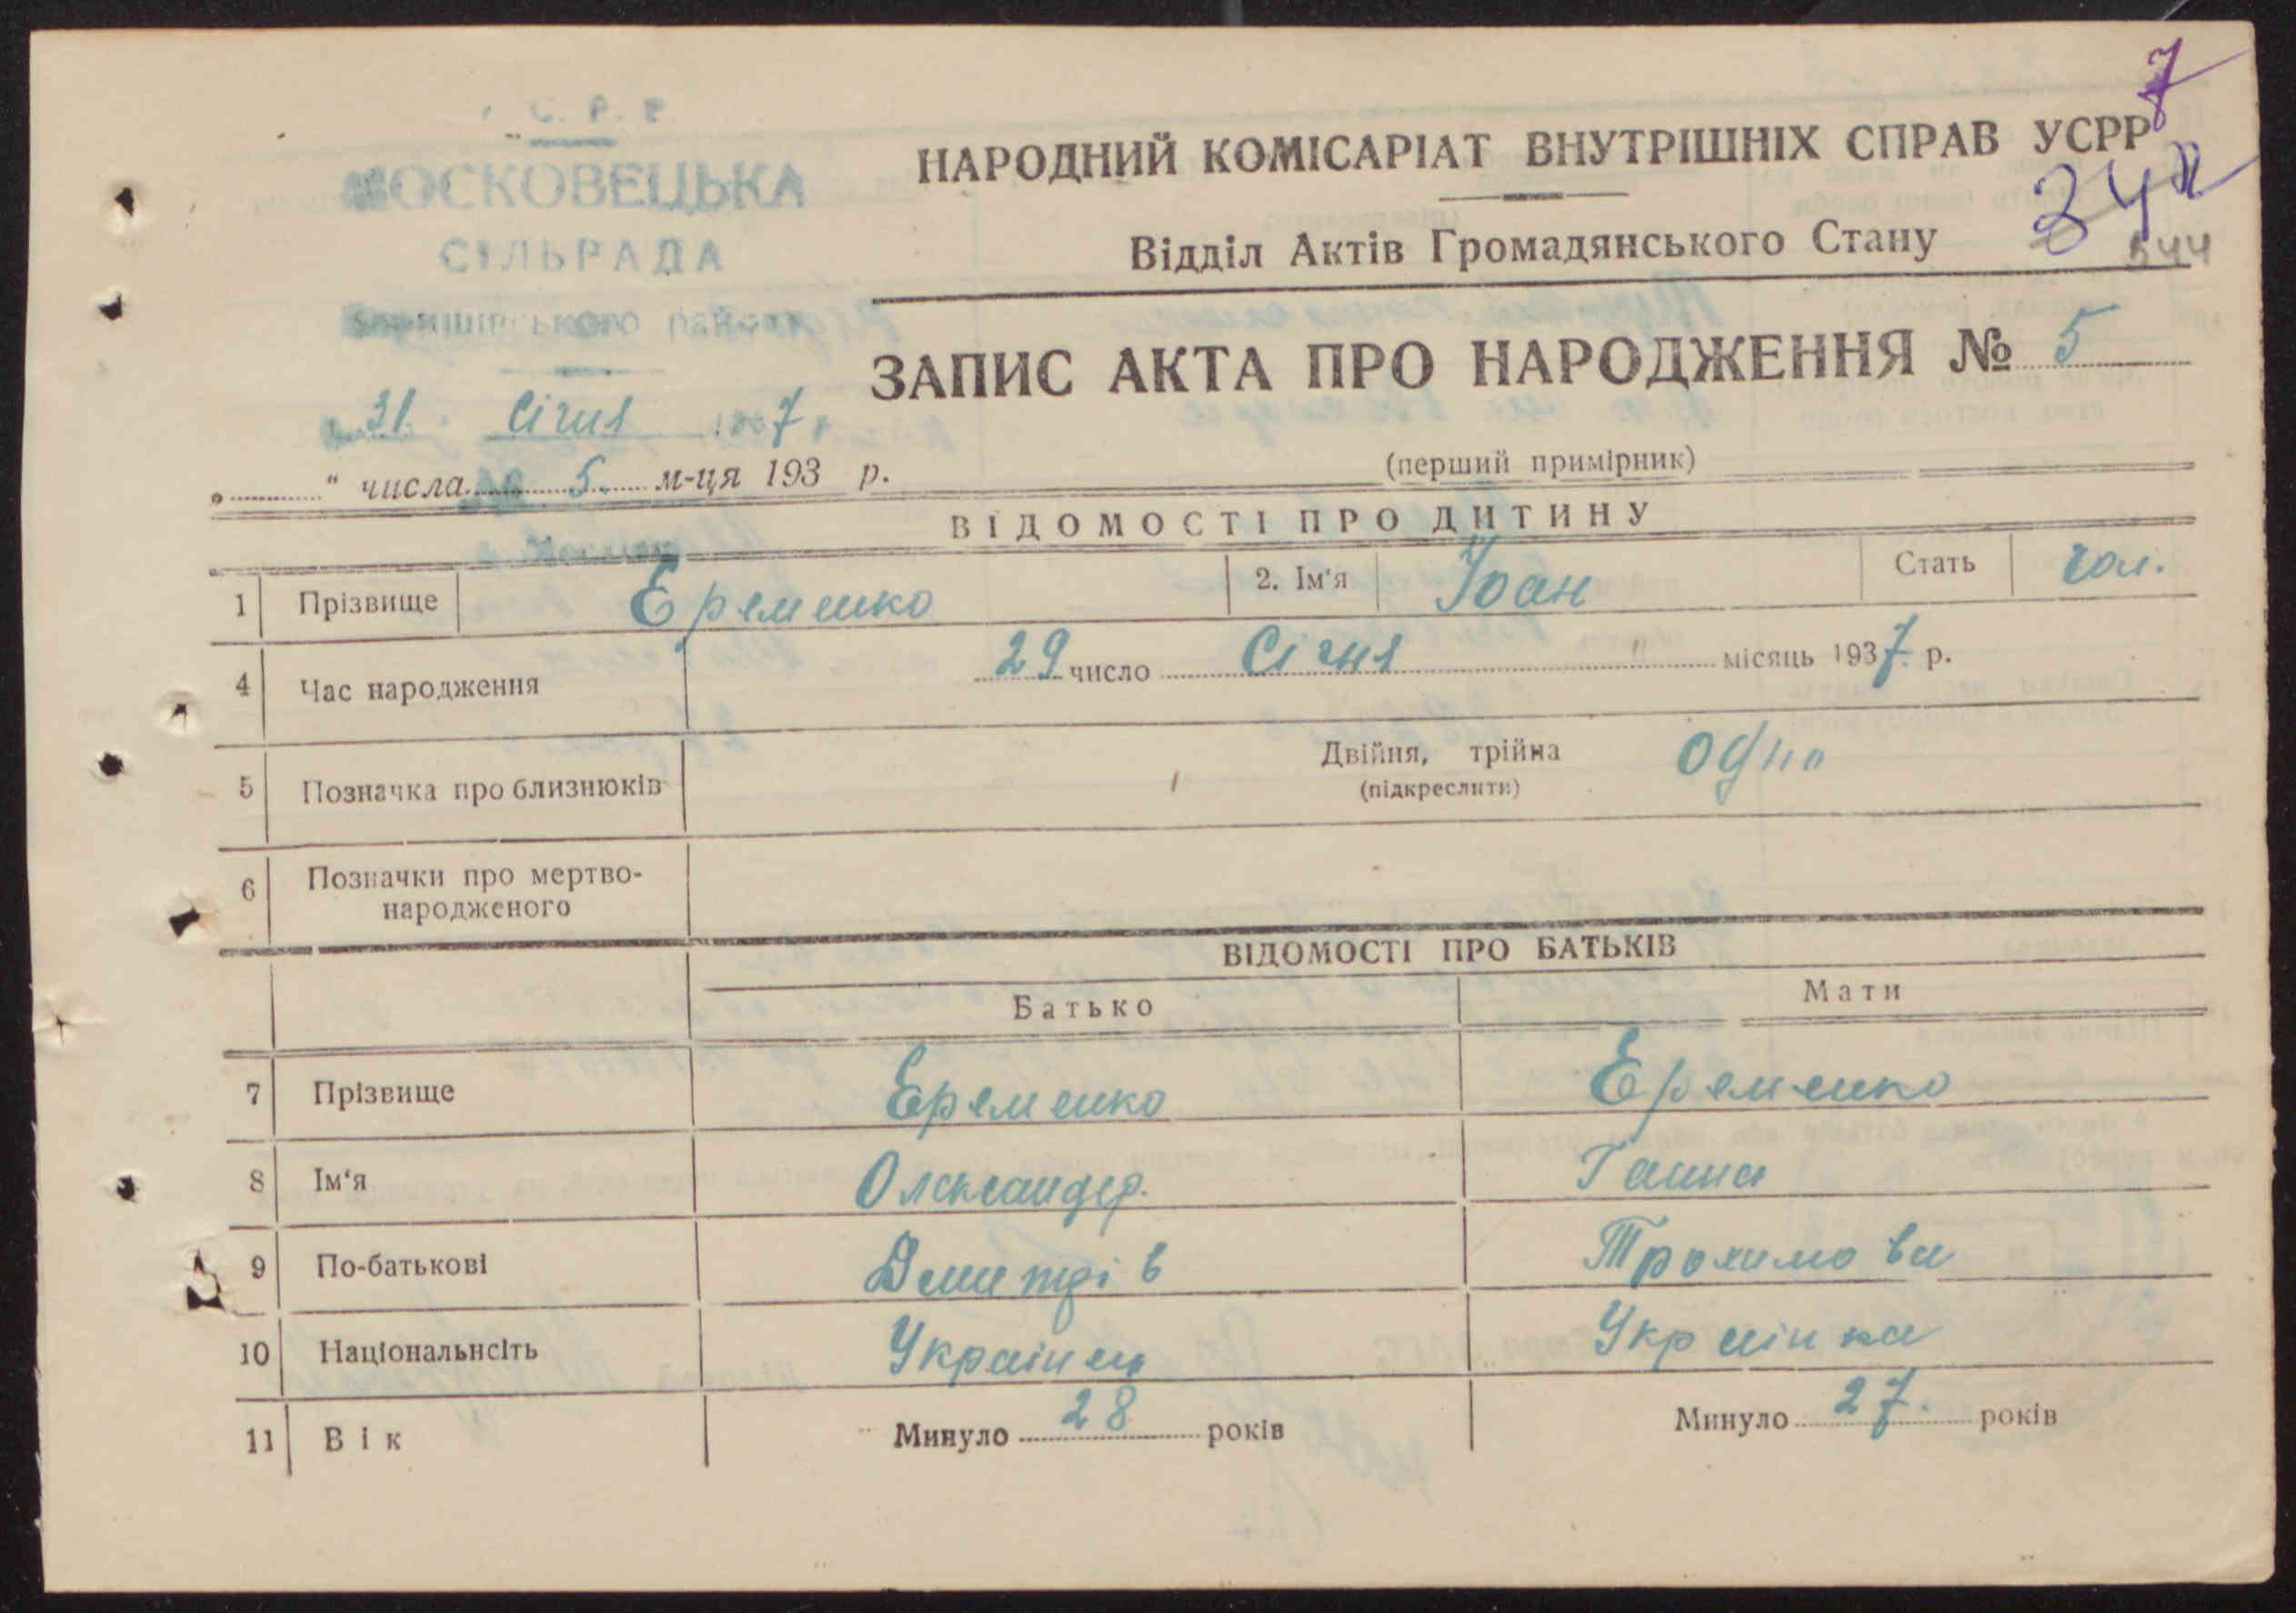 С. Р. Р.
МОСКОВЕЦЬКА
СІЛЬРАДА
району
31. Січня 1937 р
„ “ числа № 5. м-ця 193 р.
7
НАРОДНИЙ КОМІСАРІАТ ВНУТРІШНІХ СПРАВ УСРР
Відділ Актів Громадянського Стану
544
ЗАПИС АКТА ПРО НАРОДЖЕННЯ № 5
(перший примірник)
ВІДОМОСТІ ПРО ДИТИНУ
1 Прізвище Еременко 2. Ім'я Іоан Стать чол.
4 Час народження 29 число Січня місяць 1937 р.
5 Позначка про близнюків Двійня, трійна Одно
(підкреслити)
6 Позначки про мертво-
народженого
ВІДОМОСТІ ПРО БАТЬКІВ
Батько Мати
7 Прізвище Еременко Еременко
8 Ім'я Олександер. Ганна
9 По-батькові Дмитрів Трохимова
10 Національнсіть Украінец Украінка
11 Вік Минуло 28 років Минуло 27. років